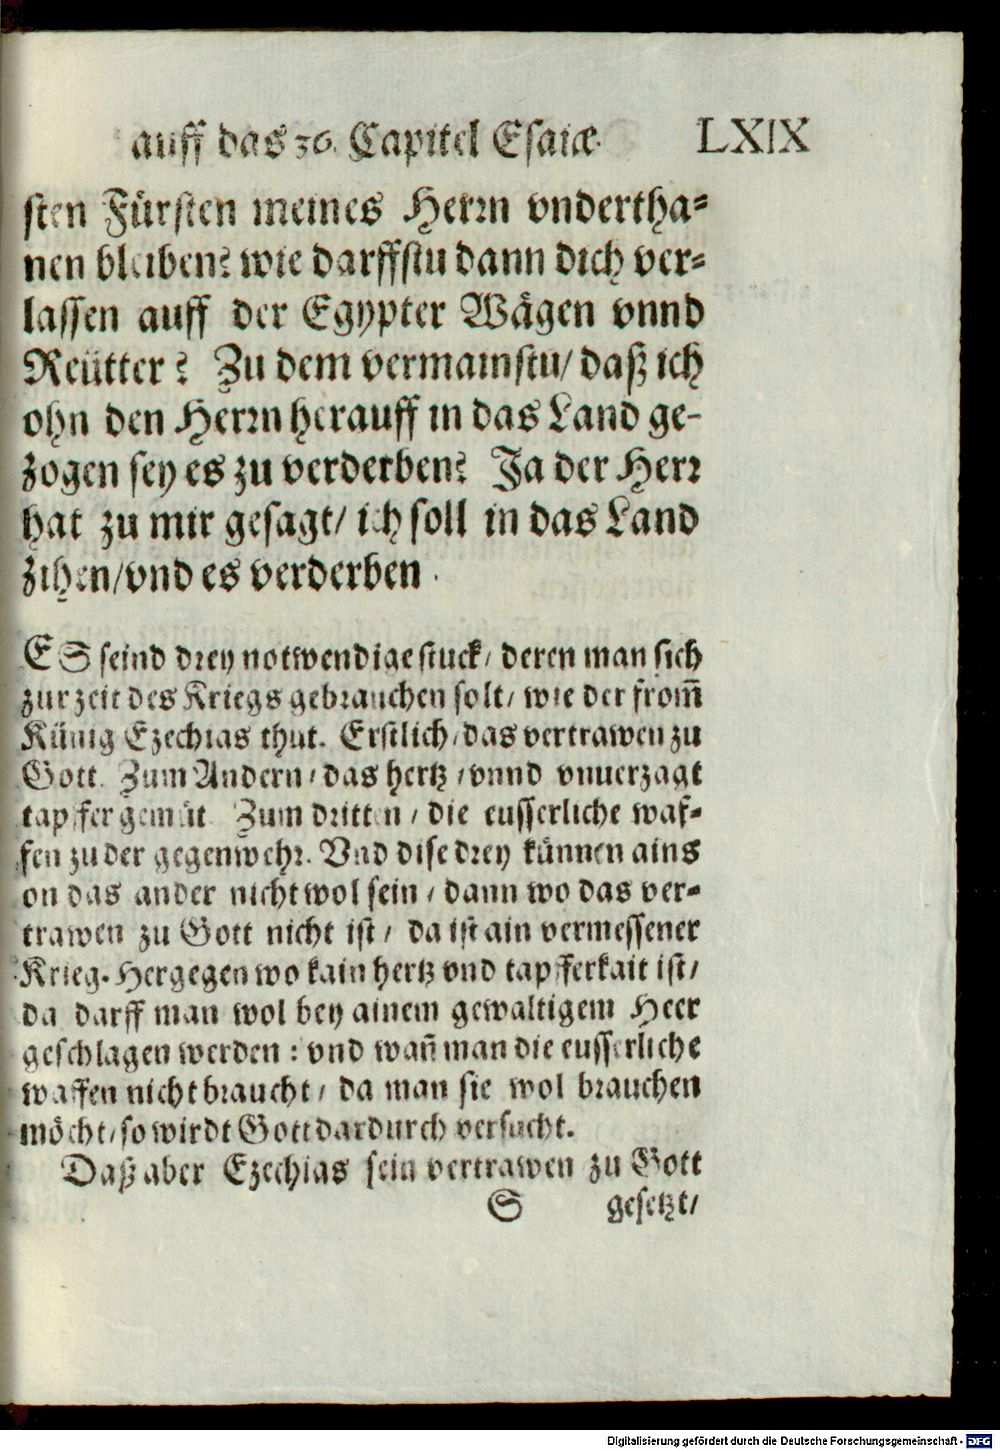 auff das 36. Capitel Esaiæ. LXIX
sten Fürsten meines Herrn vndertha-
nen bleiben? wie darffstu dann dich ver-
lassen auff der Egypter Wägen vnnd
Reütter? Zu dem vermainstu/ daß ich
ohn den Herrn herauff in das Land ge-
zogen sey es zu verderben? Ja der Herr
hat zu mir gesagt/ ich soll in das Land
zihen/vnd es verderben.
ES seind drey notwendige stuck/ deren man sich
zur zeit des Kriegs gebrauchen solt/ wie der from̄
Künig Ezechias thut. Erstlich/das vertrawen zu
Gott. Zum Andern/das hertz/vnnd vnuerzagt
tapffer gemüt Zum dritten/ die eusserliche waf-
fen zu der gegenwehr. Vnd dise drey künnen ains
on das ander nicht wol sein/dann wo das ver-
trawen zu Gott nicht ist/ da ist ain vermessener
Krieg. Hergegen wo kain hertz vnd tapfferkait ist/
da darff man wol bey ainem gewaltigem Heer
geschlagen werden: vnd wan̄ man die eusserliche
waffen nicht braucht/ da man sie wol brauchen
möcht/so wirdt Gott dardurch versucht.
Daß aber Ezechias sein vertrawen zu Gott
S gesetzt/
Digitalisierung gefördert durch die Deutsche Forschungsgemeinschaft - DFG